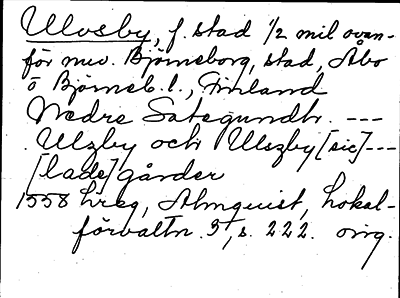 Ulvsby, f. stad 1/2 mil ovan-
för nuv. Björneborg, stad, Åbo
o Björneb. l., Finland
Nedre Satagundhr. ---
Ulzby och Ulszby [sic] ---
[lade] gårder
1558 hreg, Almquist, Lokal-
förvaltn. 3, s. 222. orig.